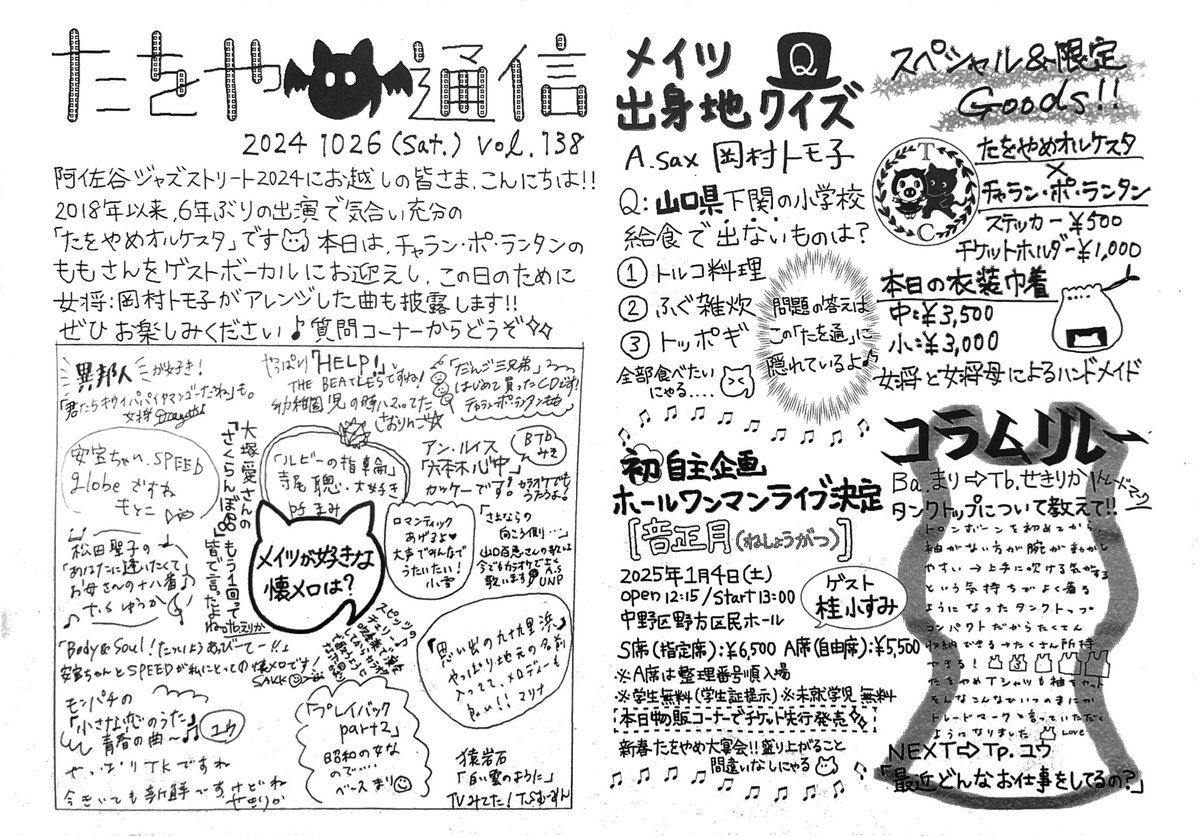 たをや通信
2024 1026 (Sat.) vol. 138
阿佐谷ジャズストリート2024にお越しの皆さま、こんにちは!!
2018年以来、6年ぶりの出演で気合い充分の
「たをやめオルケスタ」です 本日は、チャラン・ポ・ランタンの
ももさんをゲストボーカルにお迎えし、この日のために
女将:岡村トモ子がアレンジした曲も披露します!!
ぜひお楽しみください♪質問コーナーからどうぞ
異邦人が好き!
「君たちキウイパパイヤマンゴーだね」も。
女将
やっぱり「HELP!」
THE BEATLESですね!
幼稚園児の時ハマってた
さおりんご
「だんご三兄弟」
はじめて買ったCDです!
チャランポランタンもも
安室ちゃん、SPEED
globeですね
もとこ
大塚愛さんの
「さくらんぼ」
もう1回って
皆で言ったよね
tb.えりか
「ルビーの指輪」
寺尾聰・大好き
pf まみ
アン・ルイス
「六本木心中」
カッケーです。
カラオケでも
うたうよ!
BTb
みき
メイツが好きな
懐メロは?
ロマンティック
あげるよ♥
大声でみんなで
うたいたい!
小雪
「さよならの
向こう側…」
山口百恵さんの歌は
今でもカラオケでよく
歌います
A.S UNP
松田聖子の
「あなたに逢いたくて」
お母さんの十八番♪
ゆうか
「Body & Soul!たいしようあびてー!!」
安室ちゃんとSPEEDが私にとっての懐メロです!
SAKKO
スピッツの
チェリー♪
思い出の九十九里浜
やっぱり地元の名前
入ってて、メロディーも
良い!!マリナ
モンパチの
「小さな恋のうた」
青春の曲〜♪
ユウ
「プレイバック
part2」
昭和の女な
ので….
ベース まり
やっぱりTKですね
今きいても新鮮ですけどね
せきりか
猿岩石
「白い雲のように」
TVみてた!
メイツ
出身地クイズ
Q
A.sax 岡村トモ子
Q:山口県下関の小学校
給食で出ないものは?
① トルコ料理
② ふぐ雑炊
③ トッポギ
全部食べたい
にゃる....
問題の答えは
この「たを通」に
隠れているよ♪
初自主企画
ホールワンマンライブ決定
[音正月(ねしょうがつ)]
2025年1月4日(土)
open 12:15/Start 13:00
中野区野方区民ホール
ゲスト
桂小すみ
S席(指定席):¥6,500 A席(自由席):¥5,500
※A席は整理番号順入場
※学生無料(学生証提示)※未就学児無料
本日中の販コーナーでチケット先行発売
新春たをやめ大宴会!!盛り上がること
間違いなしにゃる
スペシャル&限定
Goods!!
T
C
たをやめオルケスタ
×
チャラン・ポ・ランタン
ステッカー¥500
チケットホルダー¥1,000
本日の衣装巾着
中:¥3,500
小:¥3,000
女将と女将母によるハンドメイド
コラムリレー
Ba.まり⇨Tb.せきりか(トレードマーク
タンクトップについて教えて!!
トロンボーンを初めてから
袖がない方が腕が動かし
やすい→上手に吹ける気がする
という気持ちでよく着る
ようになったタンクトップ
コンパクトだからたくさん
収納できる→たくさん所持
できる!
たをやめTシャツも袖をカット
そんなこんなでいつのまにか
トレードマークと言っていただく
ようになりました LOVE
NEXT⇨Tp.ユウ
「最近どんなお仕事をしてるの?」